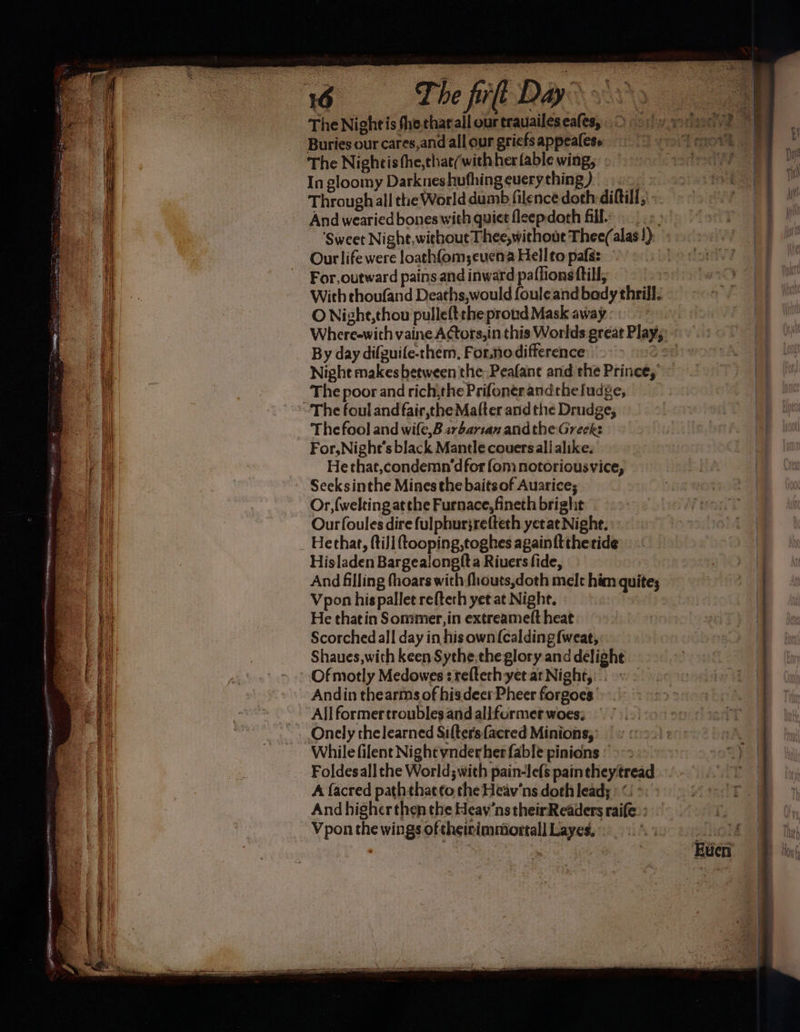 16 The first Day
The Night is she that all our trauailes eases,
Buries our cares, and all our griefs appeases.
The Night is she, that (with her sable wing,
In gloomy Darknes hushing euery thing)
Through all the World dumb silence doth distill,
And wearied bones with quiet sleep doth fill.
Sweet Night, without Thee, without Thee (alas!)
Our life were loathsom; euen a Hell to pass:
For, outward pains and inward passions still,
With thousand Deaths, would soule and body thrill.
O Night, thou pullest the proud Mask away
Where-with vaine Actors, in this Worlds great Play,
By day disguise-them. For, no difference
Night makes between the Peasant and the Prince,
The poor and rich, the Prisoner and the Iudge,
The foul and fair, the Master and the Drudge,
The fool and wise, Barbarian and the Greek:
For, Night's black Mantle couers all alike.
He that, condemn'd for som notorious vice,
Seeks in the Mines the baits of Auarice;
Or, swelting at the Furnace, fineth bright
Our soules dire sulphur; resteth yet at Night.
He that, still stooping, toghes against the tide
His laden Barge alongst a Riuers side,
And filling shoars with shouts, doth melt him quite;
Vpon his pallet resteth yet at Night.
He that in Sommer, in extreamest heat
Scorched all day in his own scalding sweat,
Shaues, with keen Sythe, the glory and delight
Of motly Medowes; resteth yet at Night,
And in the arms of his deer Pheer forgoes
All former troubles and all former woes.
Onely the learned Sisters sacred Minions,
While silent Night vnder her sable pinions
Foldes all the World; with pain-less pain they tread
A sacred path that to the Heav'ns doth lead;
And higher then the Heav'ns their Readers raise
Vpon the wings of their immortall Layes.
Euen